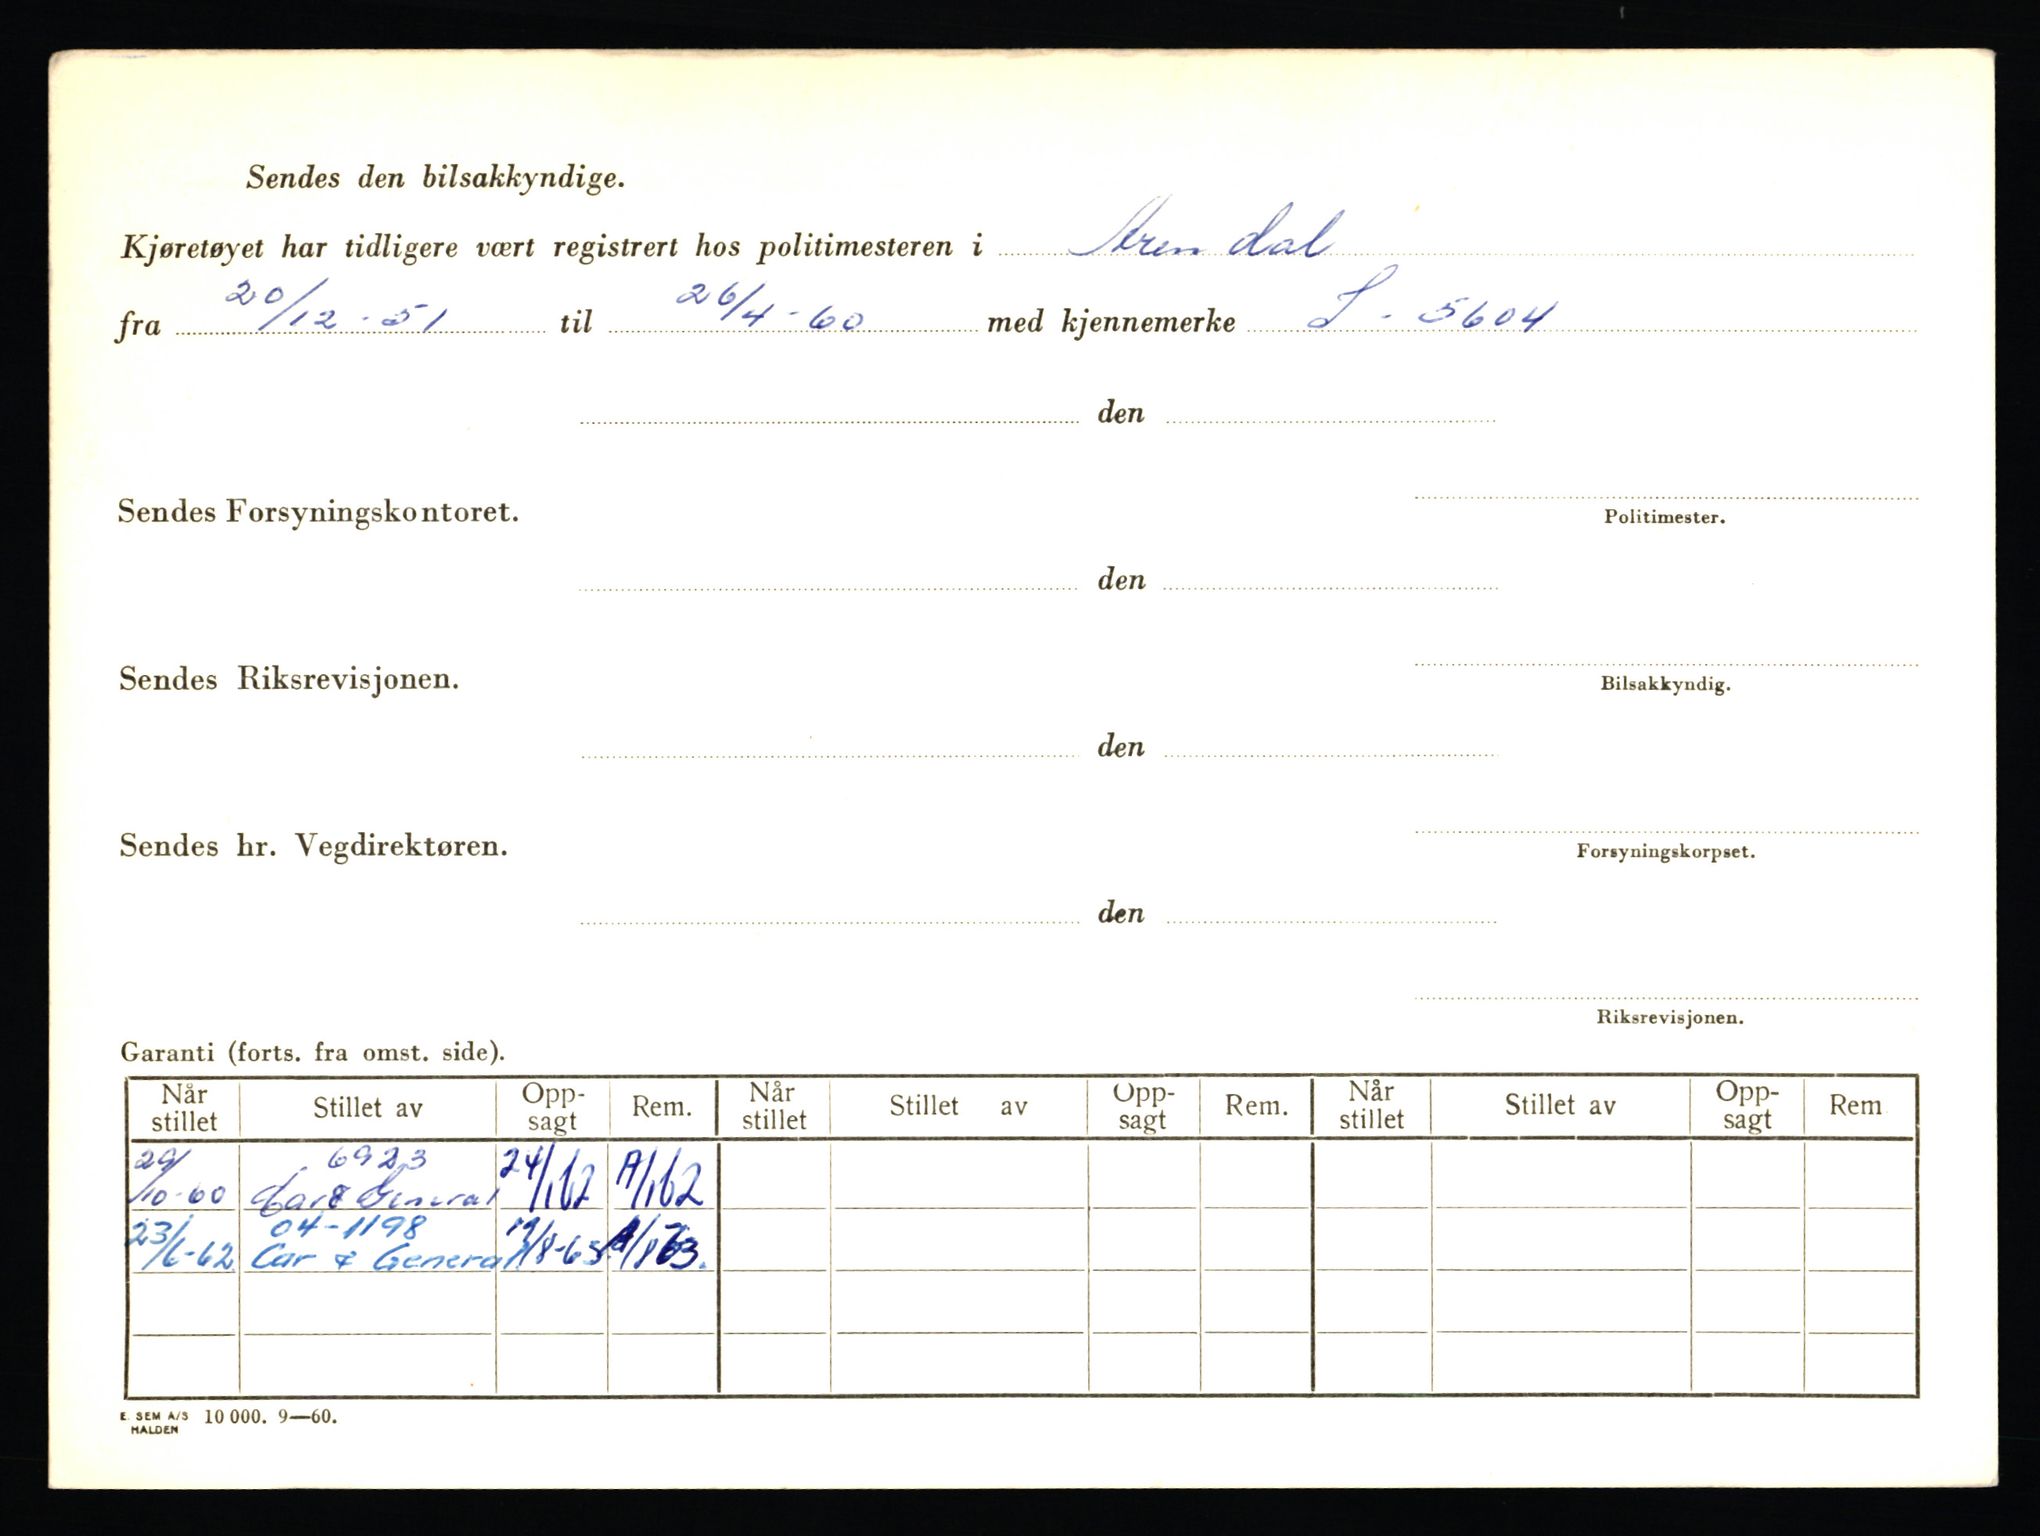 Sendes den bilsakkyndige.
Kjøretøyet har tidligere vært registrert hos politimesteren i Arendal
fra 20/12-51 til 26/4-60 med kjennemerke L-5604
den
Sendes Forsyningskontoret.
Politimester.
den
Sendes Riksrevisjonen.
Bilsakkyndig.
den
Sendes hr. Vegdirektøren.
Forsyningskorpset.
den
Riksrevisjonen.
Garanti (forts. fra omst. side).
Når stillet Stillet av Opp-sagt Rem. Når stillet Stillet av Opp-sagt Rem. Når stillet Stillet av Opp-sagt Rem
29/10-60 6923 Car & General 24/1 62 A/1 62
23/6-62 04-1198 Car & General
E. SEM A/S HALDEN 10 000. 9—60.